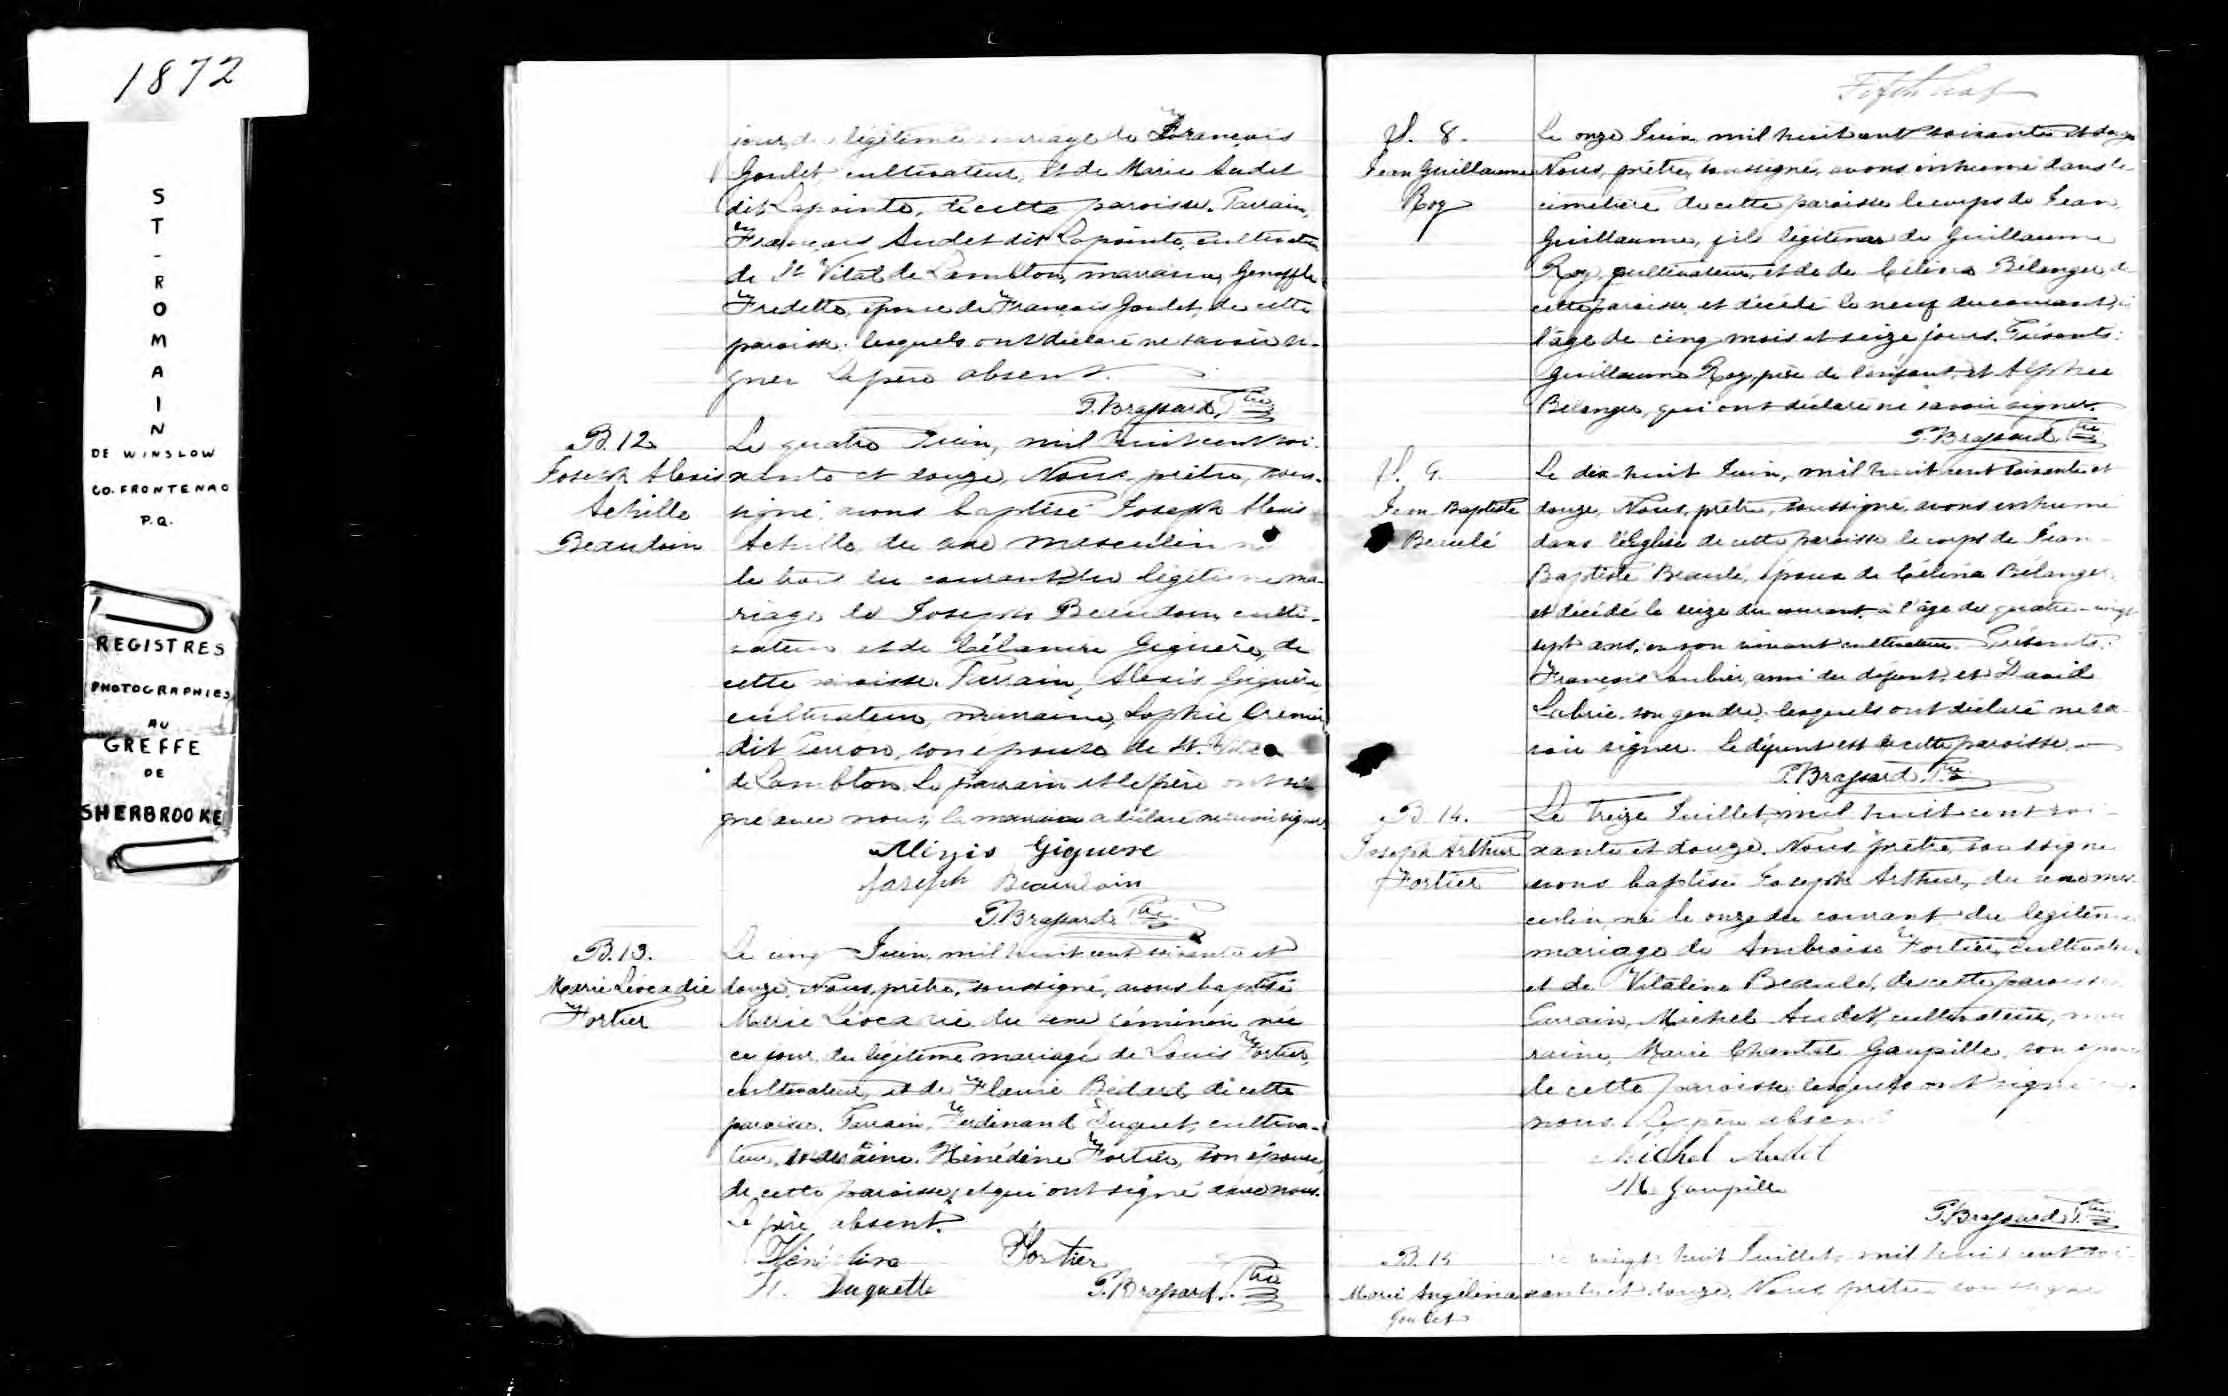 1872
ST-ROMAIN
DE WINSLOW
CO. FRONTENAC
P.Q.
REGISTRES
PHOTOGRAPHIES
AU
GREFFE
DE
SHERBROOKE
jour, du légitime mariage de François
Goulet, cultivateur, et de Marie Audet
dit Lapointe, de cette paroisse. Parrain,
François Audet dit Lapointe, cultivateur
de St Vital de Lambton, marraine,
Fredette, épouse de François Goulet, de cette
paroisse. lesquels ont déclaré ne savoir si-
gner Le père absent.
P. Brassard, Ptre
B. 12
Joseph Alexis
Achille
Beaudoin
Le quatre Juin, mil huit cent soi-
xante et douze, Nous, prêtre, sous-
signé, avons baptisé Joseph Alexis
Achille, du sexe masculin né
le trois du courant du légitime ma-
riage de Joseph Beaudoin culti-
vateur et de Célanire Giguère, de
cette paroisse. Parrain, Alexis Giguère
cultivateur, marraine, Sophie Crenier
dit Perron, son épouse de St. Vital
de Lambton. Le parrain et le père ont si-
gné avec nous, la marraine a déclaré ne savoir signer
Alexis Giguere
Joseph Beaudoin
P. Brassard Ptre
B. 13.
Marie Léocadie
Fortier
Le cinq Juin, mil huit cent soixante et
douze, Nous, prêtre, soussigné, avons baptisé
Marie Léocadie du sexe féminin née
ce jour, du légitime mariage de Louis Fortier,
cultivateur, et de Flavie Bédard, de cette
paroisse. Parrain, Ferdinand Duquet, cultiva-
teur, marraine. Hénédine Fortier, son épouse,
de cette paroisse, et qui ont signé avec nous.
Le père absent.
Hénédine Fortier
F. Duquette P. Brassard. Ptre
Fifth leaf
S. 8.
Jean Guillaume
Roy
Le onze Juin mil huit cent soixante et douze
Nous, prêtre, soussigné, avons inhumé dans le
cimetière de cette paroisse le corps de Jean
Guillaume, fils légitime de Guillaume
Roy, cultivateur, et de de Célina Bélanger, de
cette paroisse et décédé le neuf du courant, à
l'âge de cinq mois et seize jours. Présents:
Guillaume Roy, père de l'enfant, et Alphée
Bélanger, qui ont déclaré ne savoir signer.
P. Brassard Ptre
S. 9.
Jean Baptiste
Beaulé
Le dix-huit Juin, mil huit cent soixante et
douze, Nous, prêtre, soussigné, avons inhumé
dans l'Eglise de cette paroisse le corps de Jean
Baptiste Beaulé, époux de Célina Bélanger,
et décédé le seize du courant, à l'âge de quatre-vingt
sept ans, en son vivant cultivateur. Présents:
François, ami du défunt, et David
Labrie son gendre, lesquels ont déclaré ne sa-
voir signer. Le défunt est de cette paroisse.
P. Brassard. Ptre
B. 14.
Joseph Arthur
Fortier
Le treize Juillet, mil huit cent soi-
xante et douze. Nous, prêtre, soussigné
avons baptisé Joseph Arthur, du sexe mas-
culin, né le onze du courant du légitime
mariage de Ambroise Fortier, cultivateur
et de Vitaline Beaulé, de cette paroisse
Parrain, Michel Audet, cultivateur, mar-
raine, Marie Chantal Gaupille, son épouse
de cette paroisse lesquels ont signé
nous. Le père absent
Michel Audet
M. Gaupille
P. Brassard Ptre
B. 15
Marie Angelina
Goulet
Le vingt huit Juillet, mil huit cent soi-
xante et douze, Nous prêtre soussigné